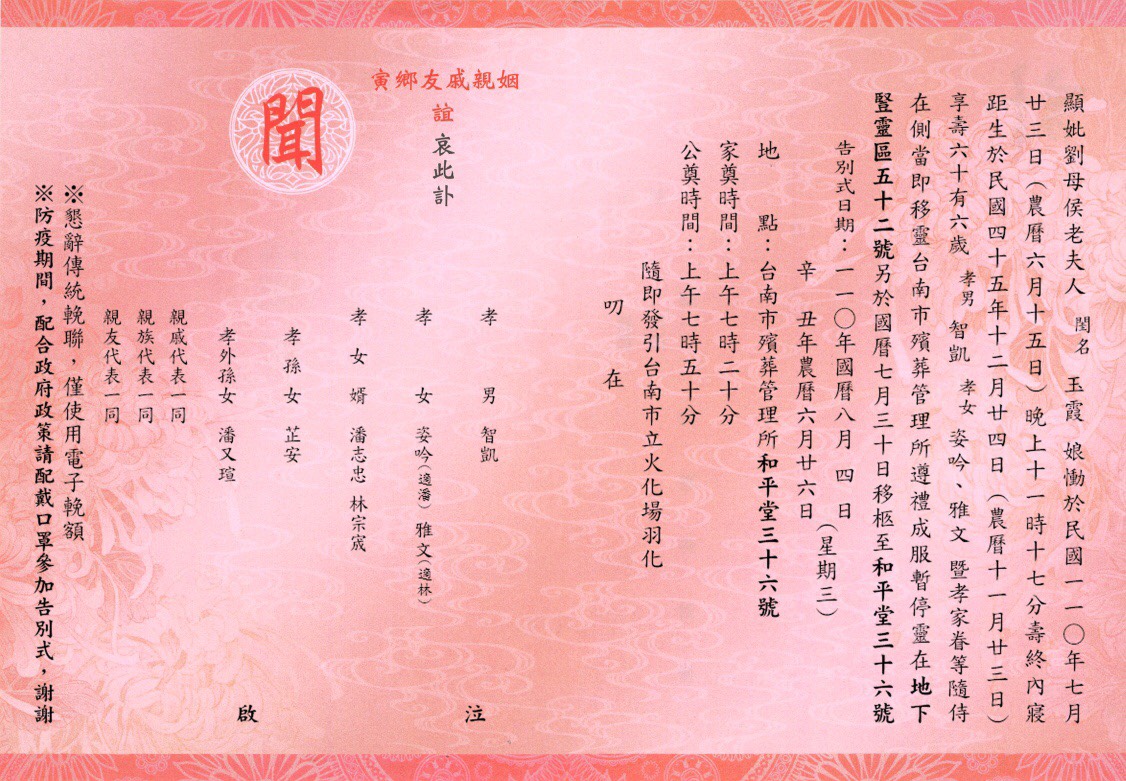 顯妣劉母侯老夫人 閨名 玉霞 娘慟於民國一一〇年七月
廿三日（農曆六月十五日）晚上十一時十七分壽終內寢
距生於民國四十五年十二月廿四日（農曆十一月廿三日）
享壽六十有六歲 孝男 智凱 孝女 姿吟、雅文 暨孝家眷等隨侍
在側當即移靈台南市殯葬管理所遵禮成服暫停靈在地下
豎靈區五十二號另於國曆七月三十日移柩至和平堂三十六號
告別式日期：一一〇年國曆八月 四 日
辛 丑年農曆六月廿六日
（星期三）
地 點：台南市殯葬管理所和平堂三十六號
家奠時間：上午七時二十分
公奠時間：上午七時五十分
隨即發引台南市立火化場羽化
叨 在
寅鄉友戚親姻
誼 哀此訃
聞
孝 男 智凱
孝 女 姿吟（適潘） 雅文（適林）
孝 女 婿 潘志忠 林宗宬
孝 孫 女 芷安
孝外孫女 潘又瑄
泣
啟
親戚代表一同
親族代表一同
親友代表一同
※懇辭傳統輓聯，僅使用電子輓額
※防疫期間，配合政府政策請配戴口罩參加告別式，謝謝